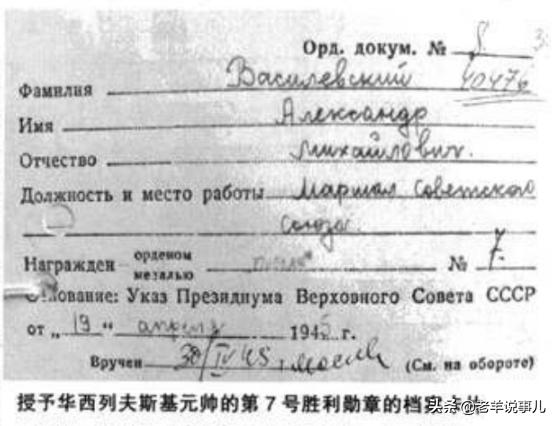 Орд. докум. № 8
40476
Фамилия Василевский
Имя Александр
Отчество Михайлович.
Должность и место работы Маршал Советского
Союза
Награжден орденом
медалью № 7.
Основание: Указ Президиума Верховного Совета СССР
от „19“ апреля 1945 г.
Вручен 30/IV 45 (См. на обороте)
授予华西列夫斯基元帅的第7号胜利勋章的档案
头条@老羊说事儿